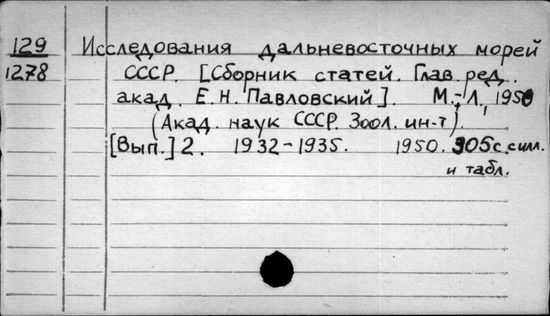 129 Исследования дальневосточных морей
1278 СССР. [Сборник статей. Глав. ред.
акад. Е. Н. Павловский]. М.-Л., 1950
(Акад. наук СССР. Зоол. ин-т).
[Вып.] 2. 1932-1935. 1950. 305 с. илл.
и табл.